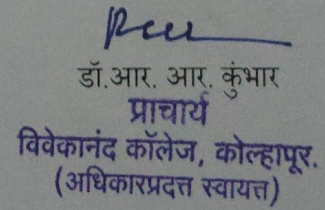 डॉ.आर. आर. कुंभार
प्राचार्य
विवेकानंद कॉलेज, कोल्हापूर.
(अधिकारप्रदत्त स्वायत्त)